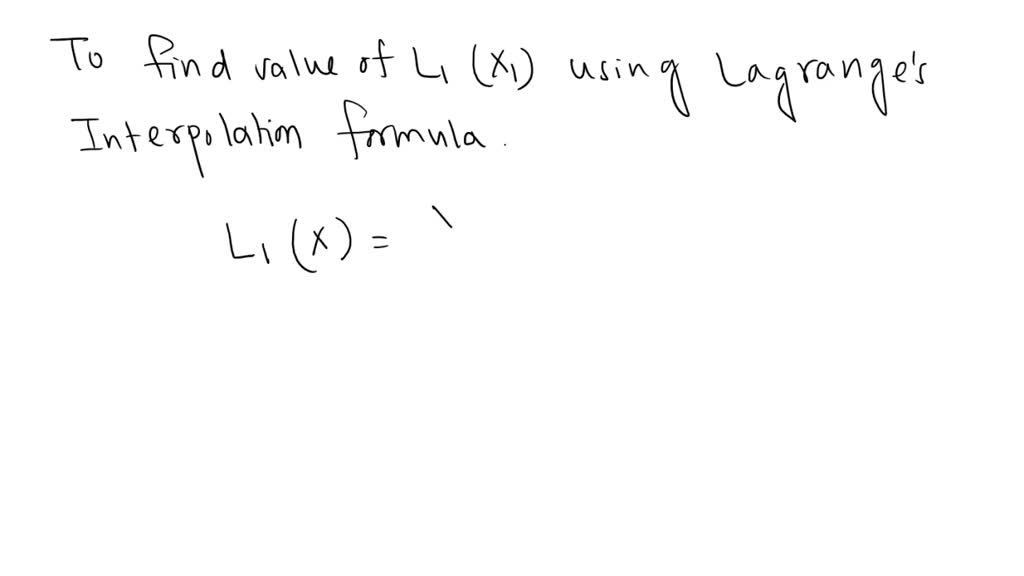 To find value of L₁ (x₁) using Lagrange's
Interpolation formula.
L₁ (x) = \